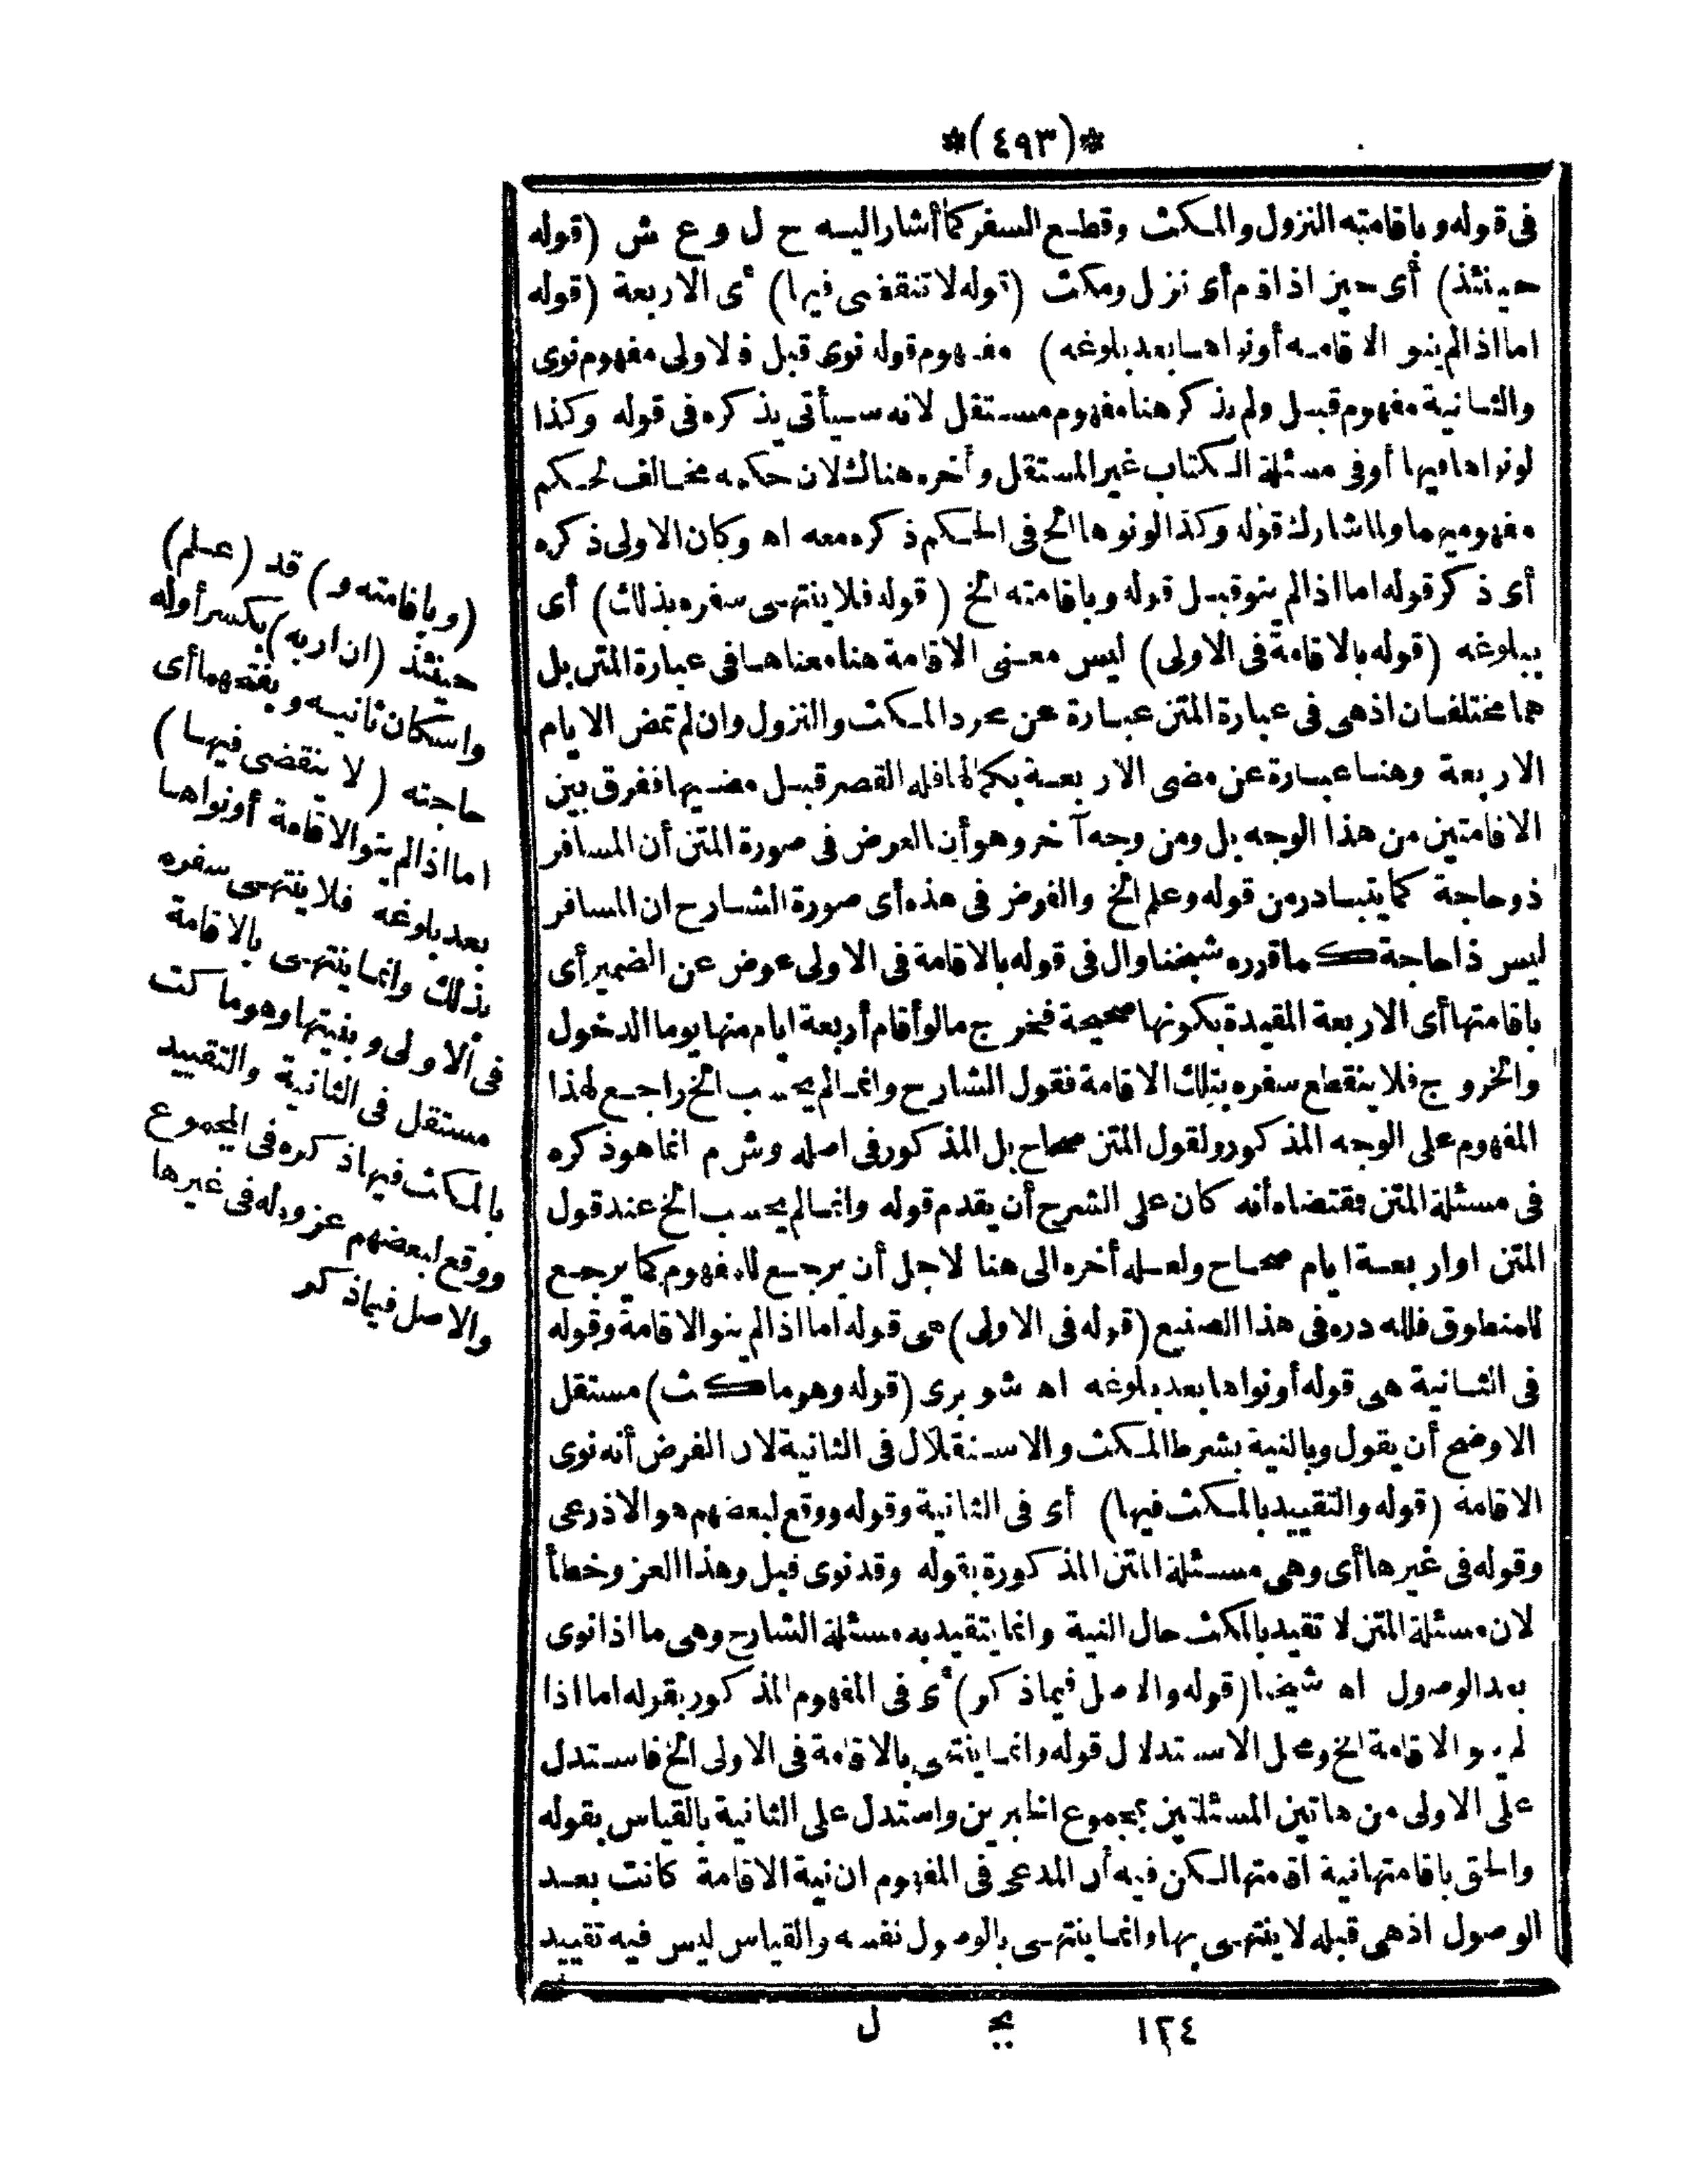 *(٤٩٣)*
فى قوله وباقامته النزول والمكث وقطع السفر كما أشار اليه ح ل وع ش (قوله
حينئذ) أى حين اذ اقام أى نزل ومكث (قوله لا تنقضى فيها) أى الاربعة (قوله
اما اذا لم ينو الاقامة أو نواها بعد بلوغه) مفهوم قوله نوى قبل فالاولى مفهوم نوى
والثانية مفهوم قبل ولم يذكر هنا مفهوم مستقل لانه سيأتى يذكره فى قوله وكذا
لو نواها فيها أو فى مسئلة الكتاب غير المستقل وأخره هناك لان حكمه مخالف لحكم
مفهوميهما ولما شارك قوله وكذا لو نوها الخ فى الحكم ذكره معه اه وكان الاولى ذكره
أى ذكر قوله اما اذا لم ينو قبل قوله وباقامته الخ (قوله فلا ينتهى سفره بذلك) أى
ببلوغه (قوله بالاقامة فى الاولى) ليس معنى الاقامة هنا معناها فى عبارة المتن بل
هما مختلفان اذ هى فى عبارة المتن عبارة عن مجرد المكث والنزول وان لم تمض الايام
الاربعة وهنا عبارة عن مضى الاربعة بكمالها فله القصر قبل مضيها ففرق بين
الاقامتين من هذا الوجه بل ومن وجه آخر وهو أن الفرض فى صورة المتن أن المسافر
ذو حاجة كما يتبادر من قوله وعلم الخ والفرض فى هذه أى صورة الشارح ان المسافر
ليس ذا حاجة كما قرره شيخنا وال فى قوله بالاقامة فى الاولى عوض عن الضمير أى
باقامتها أى الاربعة المقيدة بكونها صحيحة فخرج ما لو أقام أربعة ايام منها يوما الدخول
والخروج فلا ينقطع سفره بتلك الاقامة فقول الشارح وانما لم يحسب الخ راجع لهذا
المفهوم على الوجه المذكور ولقول المتن صحاح بل المذكور فى اصله وش م انما هو ذكره
فى مسئلة المتن فمقتضاه أنه كان على الشرح أن يقدم قوله وانما لم يحسب الخ عند قول
المتن او اربعة ايام صحاح ولعله أخره الى هنا لاجل أن يرجع للمفهوم كما يرجع
للمنطوق فلله دره فى هذا الصنيع (قوله فى الاولى) هى قوله اما اذا لم ينو الاقامة وقوله
فى الثانية هى قوله أو نواها بعد بلوغه اه شوبرى (قوله وهو ماكث) مستقل
الاوضح أن يقول وبالنية بشرط المكث والاستقلال فى الثانية لان الفرض أنه نوى
الاقامة (قوله والتقييد بالمكث فيها) أى فى الثانية وقوله ووقع لبعضهم هو الاذرعى
وقوله فى غيرها أى وهى مسئلة المتن المذكورة بقوله وقد نوى قبل وهذا العزو خطأ
لان مسئلة المتن لا تقيد بالمكث حال النية وانما يتقيد به مسئلة الشارح وهى ما اذا نوى
بعد الوصول اه شيخنا (قوله والاصل فيما ذكر) أى فى المفهوم المذكور بقوله اما اذا
لم ينو الاقامة الخ ومحل الاستدلال قوله وانما ينتهى بالاقامة فى الاولى الخ فاستدل
على الاولى من هاتين المسئلتين بمجموع الخبرين واستدل على الثانية بالقياس بقوله
والحق باقامتها نية اقامتها لكن فيه أن المدعى فى المفهوم ان نية الاقامة كانت بعد
الوصول اذ هى قبله لا ينتهى بها وانما ينتهى بالوصول نفسه والقياس ليس فيه تقييد
١٢٤ بج ل
(وباقامته و) قد (علم)
حينئذ (ان اربه) بكسر أوله
واسكان ثانيه وبفتحهما أى
حاجته (لا ينقضى فيها)
اما اذا لم ينو الاقامة أو نواها
بعد بلوغه فلا ينتهى سفره
بذلك وانما ينتهى بالاقامة
فى الاولى وبنيتها وهو ماكث
مستقل فى الثانية والتقييد
بالمكث فيها ذكره فى المجموع
ووقع لبعضهم عزوه له فى غيرها
والاصل فيما ذكر